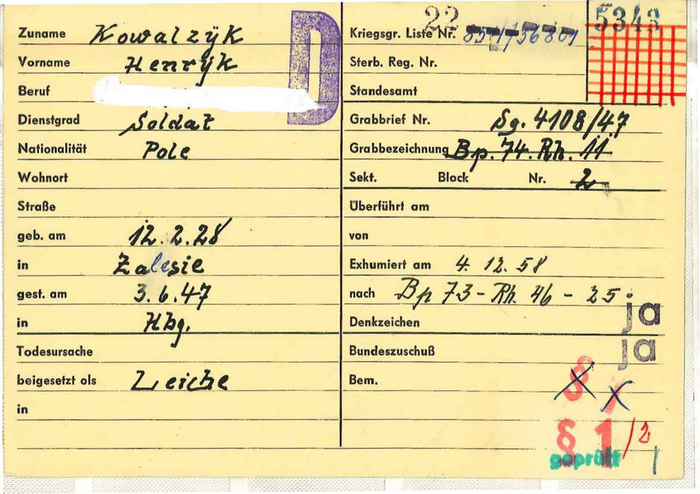 Zuname Kowalzÿk
Vorname Henrÿk
Beruf
Dienstgrad Soldat
Nationalität Pole
Wohnort
Straße
geb. am 12.2.28
in Zalesie
gest. am 3.6.47
in Hbg.
Todesursache
beigesetzt als Leiche
in
D
22
5343
Kriegsgr. Liste Nr.
Sterb. Reg. Nr.
Standesamt
Grabbrief Nr. Sg. 4108/47
Grabbezeichnung Bp. 74. Rh. 11
Sekt. Block Nr. 2
Überführt am
von
Exhumiert am 4.12.58
nach Bp 73 - Rh. 46 - 25
Denkzeichen ja
Bundeszuschuß ja
Bem.
§ 1/2
geprüft